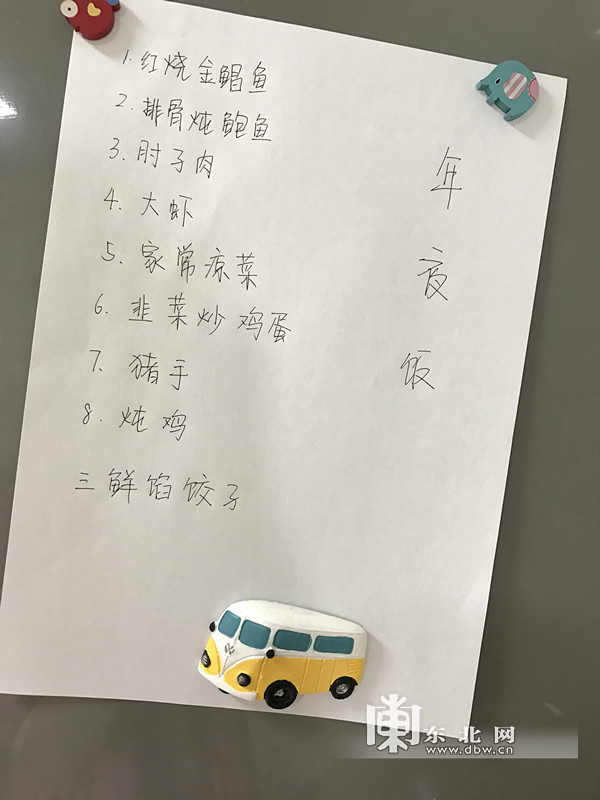 1. 红烧金鲳鱼
2. 排骨炖鲍鱼
3. 肘子肉
4. 大虾
5. 家常凉菜
6. 韭菜炒鸡蛋
7. 猪手
8. 炖鸡
三鲜馅饺子
年
夜
饭
东北网
www.dbw.cn